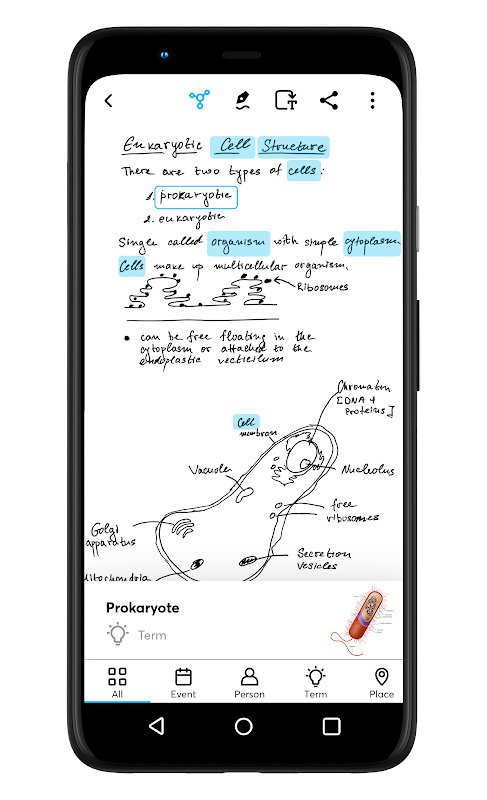 Eukaryotic Cell Structure
There are two types of cells:
1. prokaryotic
2. eukaryotic
Single called organism with simple cytoplasm
Cells make up multicellular organism.
Ribosomes
• can be free floating in the
cytoplasm or attached to the
endoplastic
Chromatin
[DNA +
Proteins]
Cell
membran
Vacuole
Nucleolus
free
ribosomes
Golgi
apparatus
Secretion
vesicles
Mitochondria
Prokaryote
Term
All Event Person Term Place